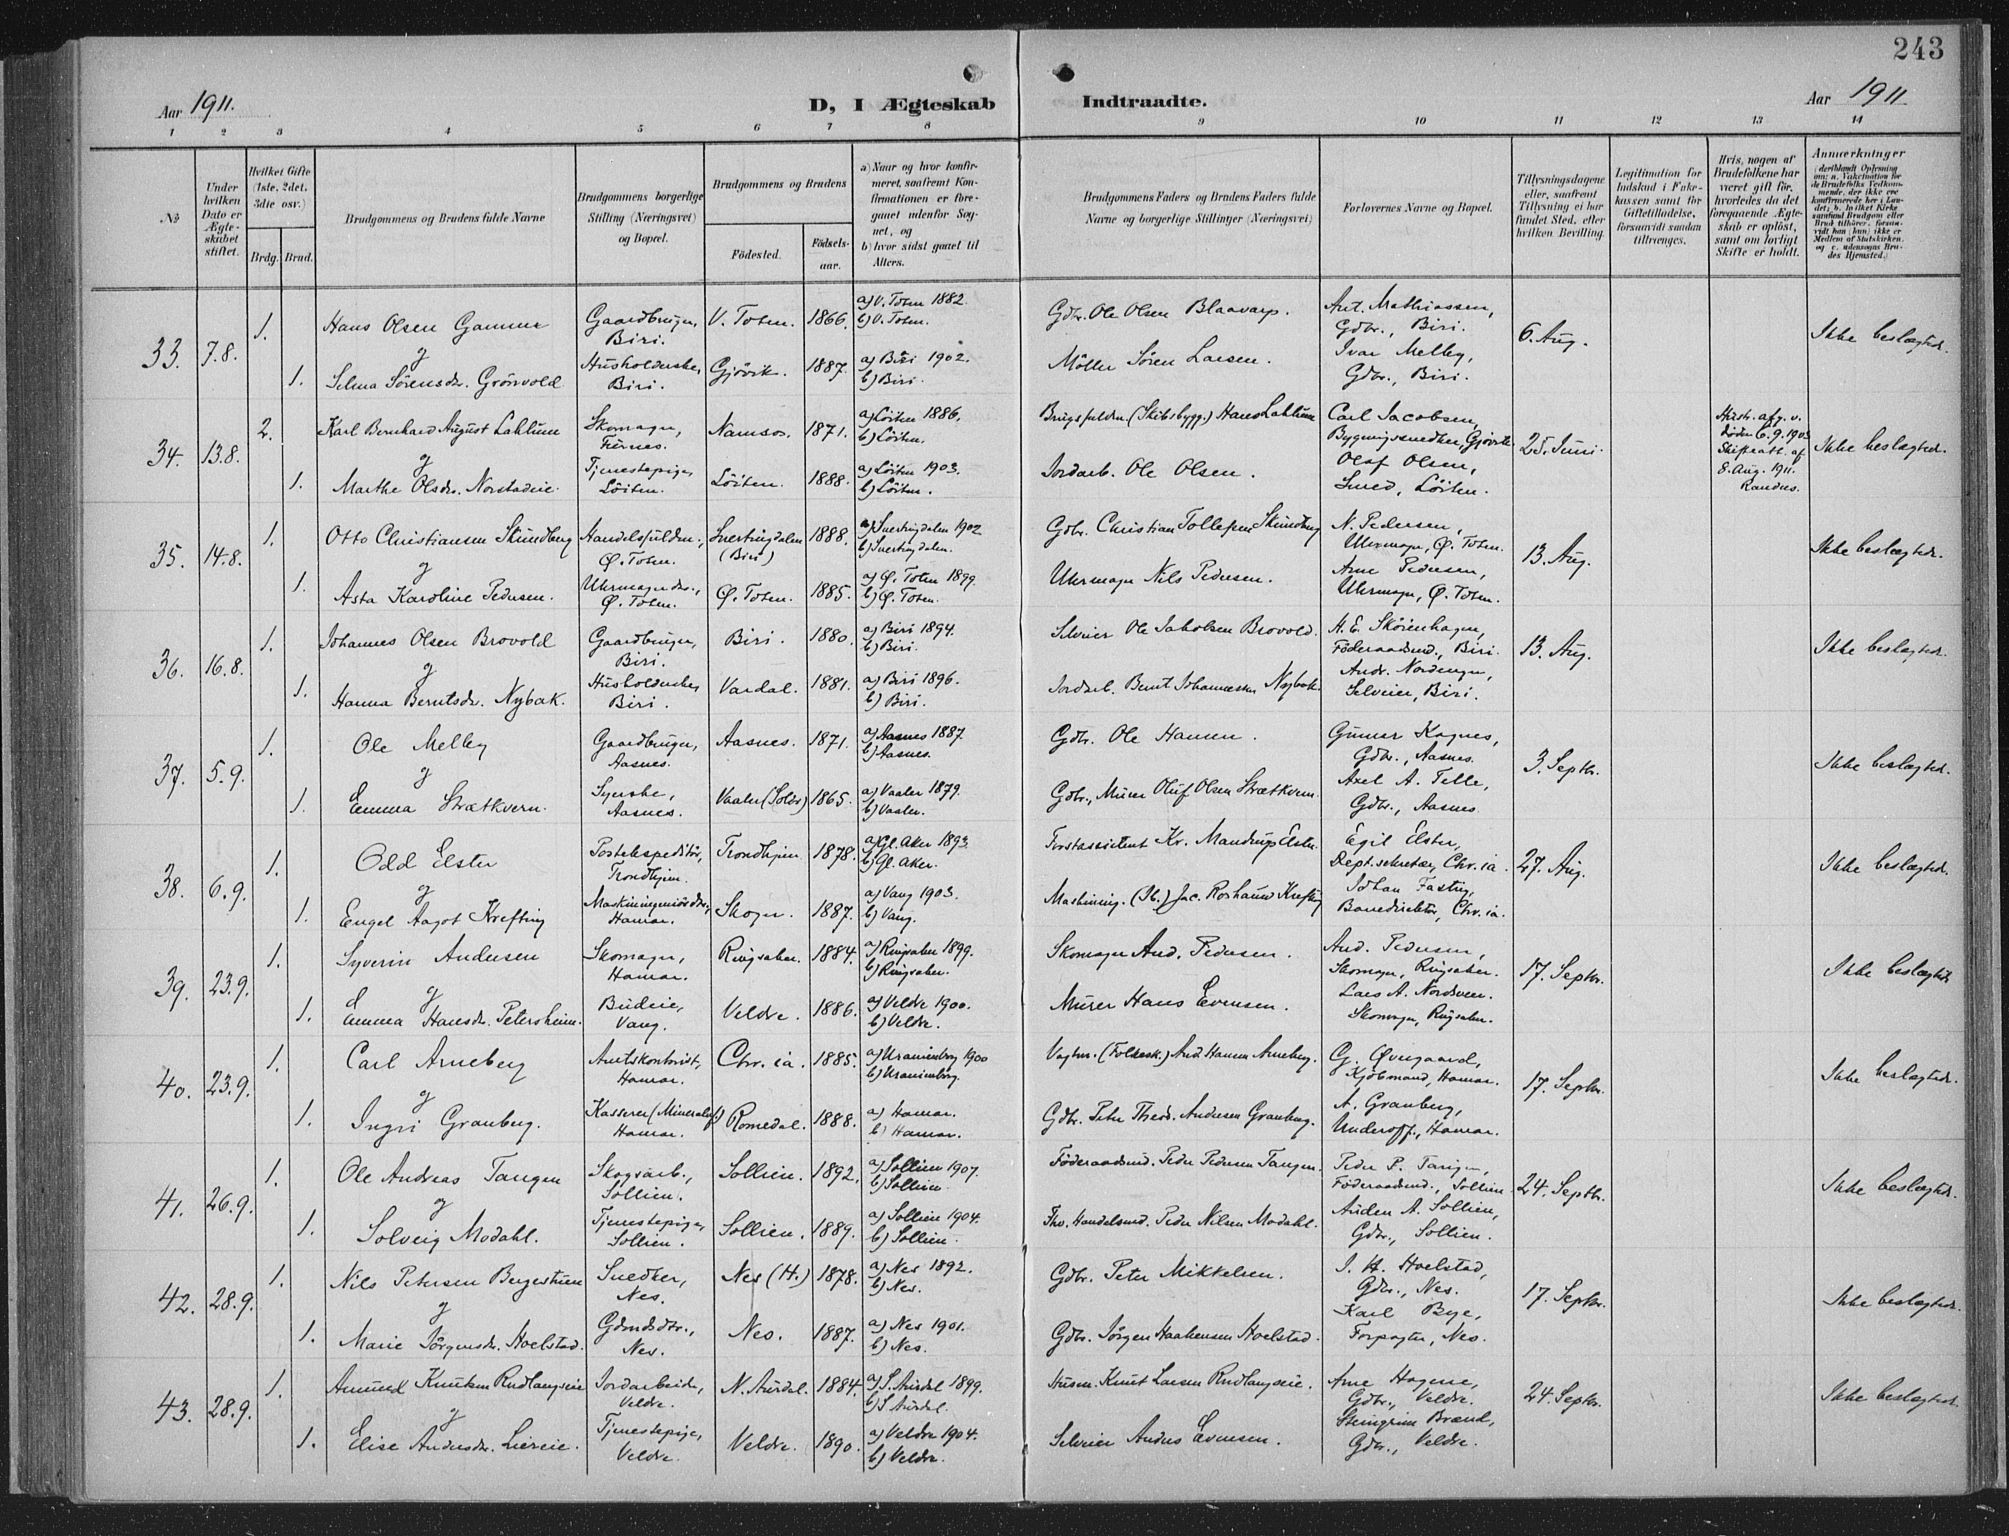 243
Aar 1911.
D, I Ægteskab Indtraadte.
Aar 1911
1 2 3 4 5 6 7 8 9 10 11 12 13 14
No
Under hvilken Dato er Ægteskabet stiftet.
Hvilket Gifte (1ste, 2det, 3die osv.)
Brdg. Brud.
Brudgommens og Brudens fulde Navne
Brudgommens borgerlige Stilling (Næringsvei) og Bopæl.
Brudgommens og Brudens
Födested.
Födsels-aar.
a) Naar og hvor konfirmeret, saafremt Konfirmationen er foregaaet udenfor Sognet, og
b) hvor sidst gaaet til Alters.
Brudgommens Faders og Brudens Faders fulde Navne og borgerlige Stillinger (Næringsvei)
Forlovernes Navne og Bopæl.
Tillysningsdagene eller, saafremt Tillysning ei har fundet Sted, efter hvilken Bevilling.
Legitimation for Indskud i Enkekassen samt for Giftetilladelse, forsaavidt saadan tiltrænges.
Hvis, nogen af Brudefolkene har været gift för, hvorledes da det foregaaende Ægteskab er oplöst, samt om lovligt Skifte er holdt.
Anmærkninger
33. 7.8. 1.
Hans Olsen Gamme
Gaardbruger, Biri.
V. Toten. 1866.
a) V. Toten 1882.
b) V. Toten.
Gdbr. Ole Olsen Blaavarp.
Ant. Mathiassen, Gdbr., Biri.
6. Aug.
Ikke beslægtede.
og
1. Selma Sörensdr. Grönvold
Husholderske, Biri.
Gjövik. 1887.
a) Biri 1902.
b) Biri.
Möller Sören Larsen.
Ivar Melby, Gdbr., Biri.
34. 13.8. 2.
Karl Bernhard August Lahlum
Skomager, Furnes.
Namsos. 1871.
a) Löiten 1886.
b) Löiten.
Brugsfuldm. (Skibsbygg.) Hans Lahlum
Carl Jacobsen, Bygningssnedker, Gjövik
25. Juni
Hustr. afg. v. döden 6.9.1903 Skifteatt. af 8. Aug. 1911. Randnes.
Ikke beslægtede.
og
1. Marthe Olsdr. Norstadeie.
Tjenestepige, Löiten.
Löiten. 1888.
a) Löiten 1903.
b) Löiten.
Jordarb. Ole Olsen.
Olaf Olsen, Smed, Löiten.
35. 14.8. 1.
Otto Christiansen Skundberg
Handelsfuldm., Ø. Toten.
Snertingdalen (Biri) 1888.
a) Snertingdalen 1902
b) Snertingdalen.
Gdbr. Christian Tollefsen Skundberg
N. Pedersen, Uhrmager, Ø. Toten.
13. Aug.
Ikke beslægtede.
og
1. Asta Karoline Pedersen.
Uhrmagerdr., Ø. Toten.
Ø. Toten. 1885.
a) Ø. Toten 1899.
b) Ø. Toten.
Uhrmager Nils Pedersen.
Arne Pedersen, Uhrmager, Ø. Toten.
36. 16.8. 1.
Johannes Olsen Brovold
Gaardbruger, Biri.
Biri. 1880.
a) Biri 1894.
b) Biri.
Selveier Ole Jakobsen Brovold.
H. E. Skörenhagen, Föderaadsmd., Biri.
13. Aug.
Ikke beslægtede.
og
1. Hanna Berntsdr. Nybak.
Husholderske, Biri.
Vardal. 1881.
a) Biri 1896.
b) Biri.
Jordarb. Bernt Johannessen Nybak.
Andr. Nordengen, Selveier, Biri.
37. 5.9. 1.
Ole Melby
Gaardbruger, Aasnes.
Aasnes. 1871.
a) Aasnes 1887.
b) Aasnes.
Gdbr. Ole Hansen.
Gunnar Kognes, Gdbr., Aasnes.
3. Septbr.
Ikke beslægtede.
og
1. Emma Strætkvern.
Syerske, Aasnes.
Vaaler (Solör) 1865.
a) Vaaler 1879.
b) Vaaler.
Gdbr., Murer Oluf Olsen Strætkvern.
Axel A. Telle, Gdbr., Aasnes.
38. 6.9. 1.
Odd Elster
Postekspeditör, Trondhjem.
Trondhjem. 1878.
a) Gl. Aker 1893
b) Gl. Aker.
Forstassistent Kr. Mandrup Elster.
Egil Elster, Dept. sekretær, Chr.ia.
27. Aug.
Ikke beslægtede.
og
1. Engel Aagot Krefting
Maskiningeniördtr., Hamar.
Skogn. 1887.
a) Vang 1903.
b) Vang.
Maskining. (Jb.) Jac. Roshauw Krefting
Johan Fasting, Banedirektör, Chr.ia.
39. 23.9. 1.
Syverin Andersen
Skomager, Hamar.
Ringsaker. 1884.
a) Ringsaker 1899.
b) Ringsaker.
Skomager And. Pedersen.
And. Pedersen, Skomager, Ringsaker.
17. Septbr.
Ikke beslægtede
og
1. Emma Hansdr. Petersheim.
Budeie, Vang.
Veldre. 1886.
a) Veldre 1900.
b) Veldre.
Murer Hans Evensen.
Lars A. Nordsveen. Skomager, Ringsaker.
40. 23.9. 1.
Carl Arneberg
Amtskontorist, Hamar.
Chr.ia. 1885.
a) Uranienborg 1900
b) Uranienborg.
Vagtm. (Folkesk.) And. Hansen Arneberg.
G. Øvergaard, Kjöbmand, Hamar.
17. Septbr.
Ikke beslægtede.
og
1. Ingri Granberg.
Kasserer (Mineralvf.) Hamar.
Romedal. 1888.
a) Hamar.
b) Hamar.
Gdbr. Peter Theod. Andersen Granberg.
A. Granberg, Underoff., Hamar.
41. 26.9. 1.
Ole Andreas Tangen
Skogsarb., Sollien.
Sollien. 1892.
a) Sollien 1907.
b) Sollien.
Föderaadsmd. Peder Pedersen Tangen.
Peder P. Tangen, Föderaadsmd., Sollien
24. Septbr.
Ikke beslægtede.
og
1. Solveig Modahl.
Tjenestepige, Sollien.
Sollien. 1889.
a) Sollien 1904.
b) Sollien.
Fhv. Handelsmd. Peder Nilsen Modahl.
Auden A. Sollien, Gdbr., Sollien.
42. 28.9. 1.
Nils Petersen Bergestuen
Snedker, Nes.
Nes (H.) 1878.
a) Nes 1892.
b) Nes.
Gdbr. Peter Mikkelsen.
J. H. Hoelstad, Gdbr., Nes.
17. Septbr.
Ikke beslægtede.
og
1. Marie Jörgensdr. Hoelstad.
Gdmdsdtr., Nes.
Nes. 1887.
a) Nes 1901.
b) Nes.
Gdbr. Jörgen Haakensen Hoelstad.
Karl Bye, Forpagter, Nes.
43. 28.9. 1.
Amund Knutsen Rudlangseie
Jordarbeider, Veldre.
N. Aurdal. 1884.
a) S. Aurdal 1899.
b) S. Aurdal.
Husm. Knut Larsen Rudlangseie.
Arne Hagene, Gdbr., Veldre.
24. Septbr.
Ikke beslægtede.
og
1. Elise Andersdr. Liereie.
Tjenestepige, Veldre.
Veldre. 1890.
a) Veldre 1904.
b) Veldre.
Selveier Anders Evensen.
Steingrim Brænd, Gdbr., Veldre.